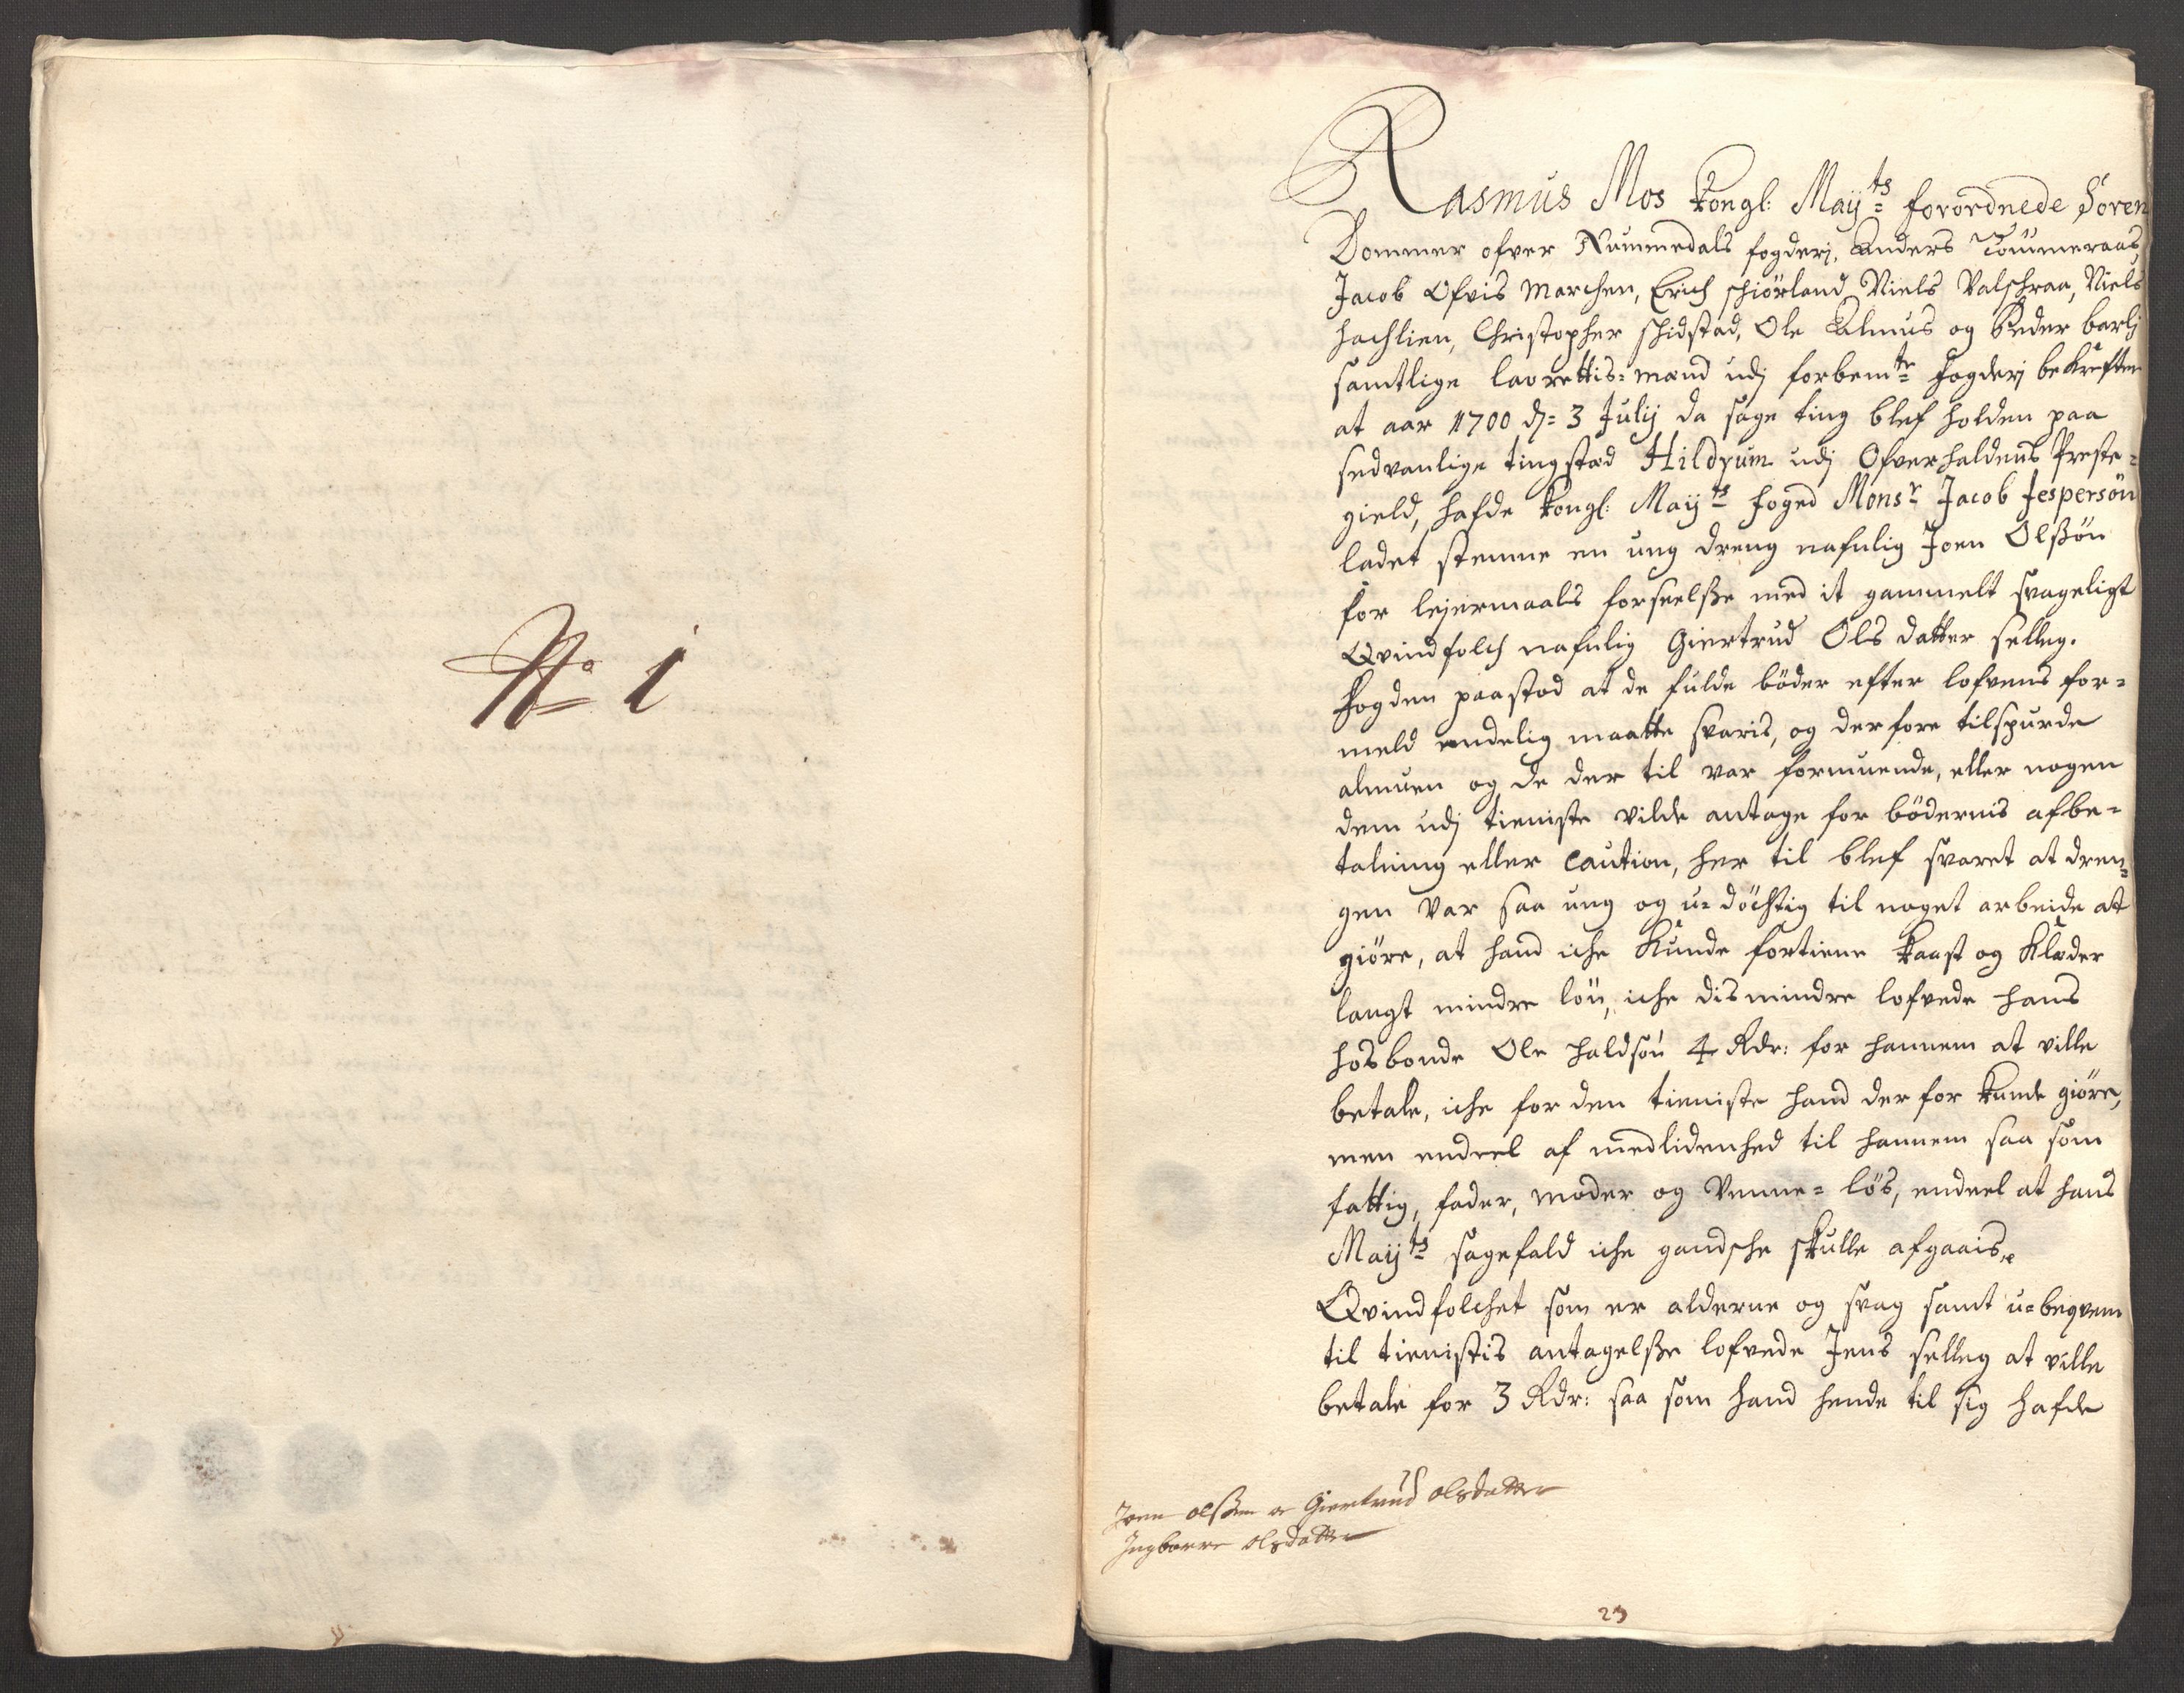 No 1
Rasmus Mos Kongl: Mayts forordnede Soren
Dommer ofver Nummedals fogderj, Anders Tømmeraas,
Jacob Ofvis Marchen, Erich schiørland, Niels Valschraa, Niels
hachlien, Christopher schidstad, Ole Almus og Peder barlj
samtlige laurettis-mænd udj forbemte fogderj bekræfter
at aar 1700 d= 3 Julij da sage ting blef holden paa
sedvanlige tingstæd Hildrum udj Ofverhaldens Preste=
gield, hafde Kongl: Mayts foged Monsr Jacob Jespersøn
ladet stemme en ung dreng nafnlig Joen Olssøn
for lejermaals forseelsse med it gammelt svageligt
Qvindfolch nafnlig Giertrud Ols datter selleg.
Fogden paastod at de fulde bøder efter lofvens for=
meld endelig maatte svaris, og derfore tilspurde
almuen og de der til var formuende, eller nogen
dem udj tieniste vilde antage for bødernis afbe=
taling eller Caution, her til blef svaret at dren=
gen var saa ung og u=døchtig til noget arbeide at
giøre, at hand iche kunde fortiene kaast og klæder
langt mindre løn, iche dismindre lofvede hans
hosbonde Ole Haldsøn 4 Rdr: for hannem at ville
betale, iche for den tieniste hand der for kunde giøre,
men endeel af medlidenhed til hannem saa som
fattig, fader, moder og venne=løs, endeel at hans
Mayts sagefald iche gandsche skulle afgaais.
Qvindfolchet som er alderne og svag samt u=beqvem
til tienistis antagelsse lofvede Jens selleg at ville
betale for 3 Rdr: saa som hand hende til sig hafde
Joen olssen oc Giertrud olsdatter
Ingborre olsdatter
23